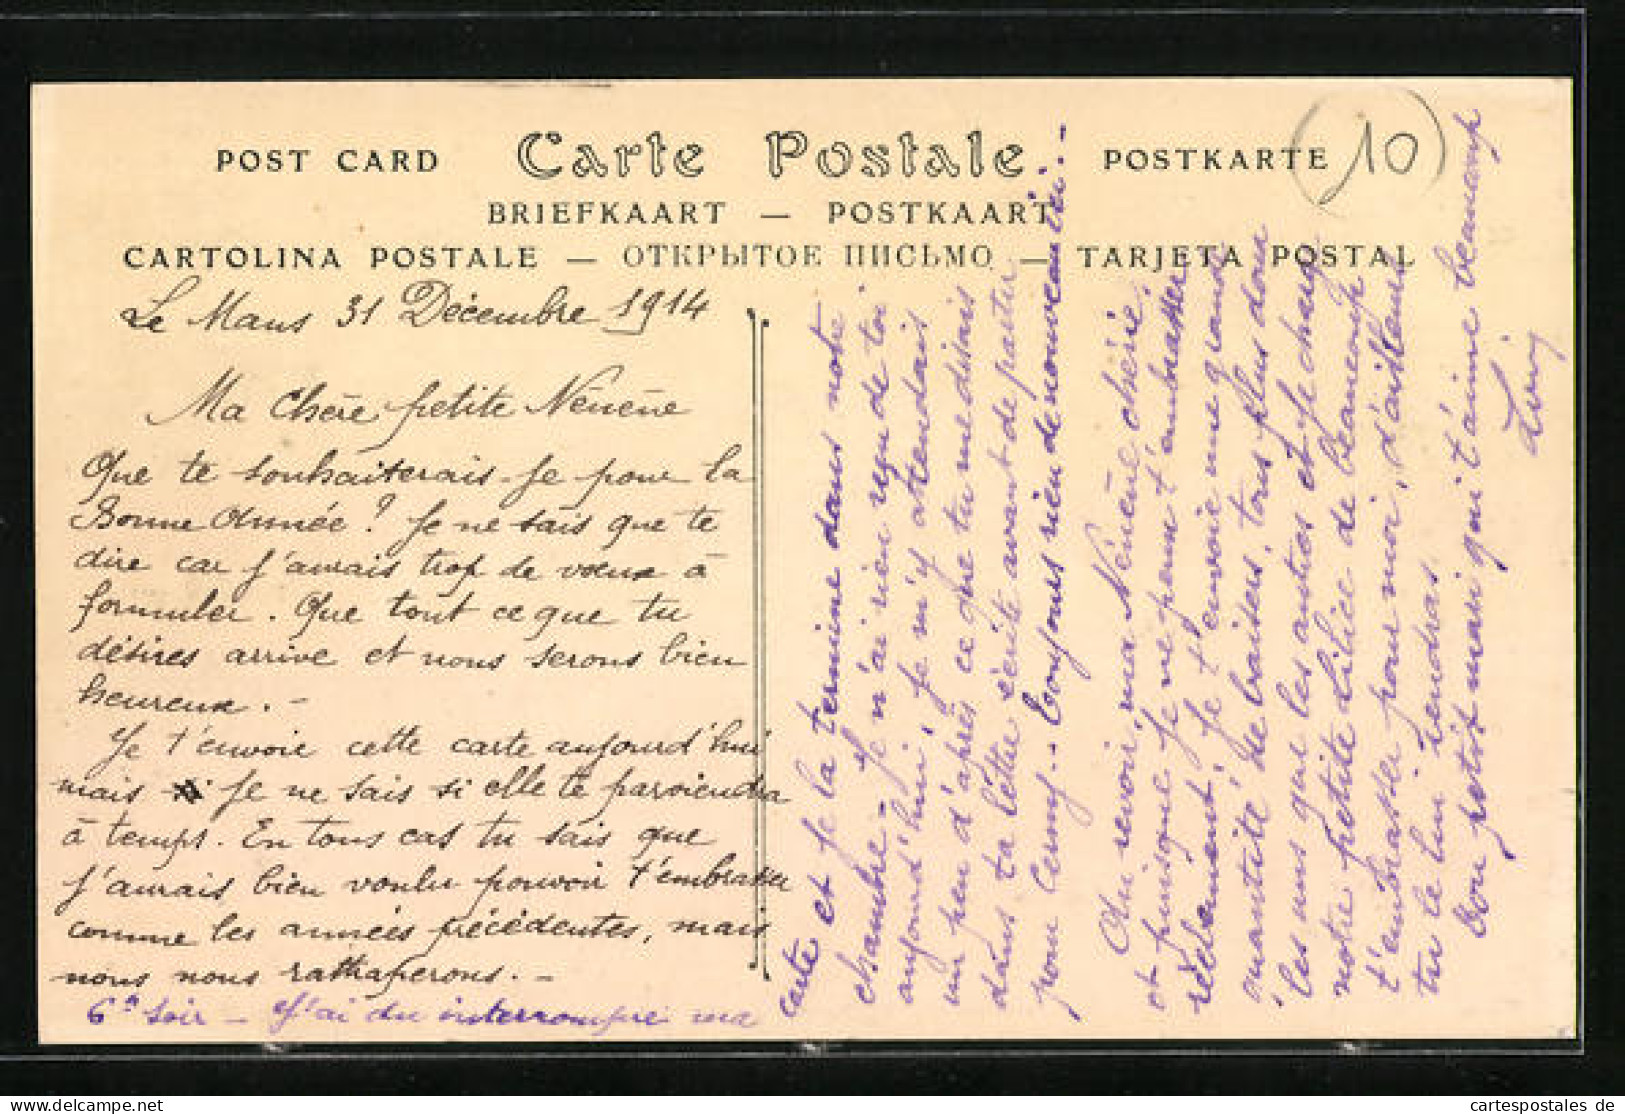 POST CARD Carte Postale POSTKARTE
10
BRIEFKAART — POSTKAART
CARTOLINA POSTALE — ОТКРЫТОЕ ПИСЬМО — TARJETA POSTAL
Le Mans 31 Décembre 1914
Ma Chère petite Nénène
Que te souhaiterais-je pour la
Bonne Année ? Je ne sais que te
dire car j'aurais trop de vœux à
formuler. Que tout ce que tu
désires arrive et nous serons bien
heureux. -
Je t'envoie cette carte aujourd'hui
mais je ne sais si elle te parviendra
à temps. En tous cas tu sais que
j'aurais bien voulu pouvoir t'embrasser
comme les années précédentes, mais
nous nous rattraperons. -
6h soir - J'ai du interrompre ma
carte et je la termine dans notre
chambre - Je n'ai rien reçu de toi
aujourd'hui, je m'y attendais
un peu d'après ce que tu me disais
dans ta lettre écrite avant de partir
pour Cenny.. Toujours rien de nouveau ici. -
Au revoir, ma Nénène chérie,
et puisque je ne peux t'embrasser
réellement, je t'envoie une grande
quantité de baisers, tous plus doux
les uns que les autres et je charge
notre petite Lilice de beaucoup
t'embrasser pour moi, d'ailleurs
tu le lui rendras.
Ton petit mari qui t'aime beaucoup
Louis
cartespostales de